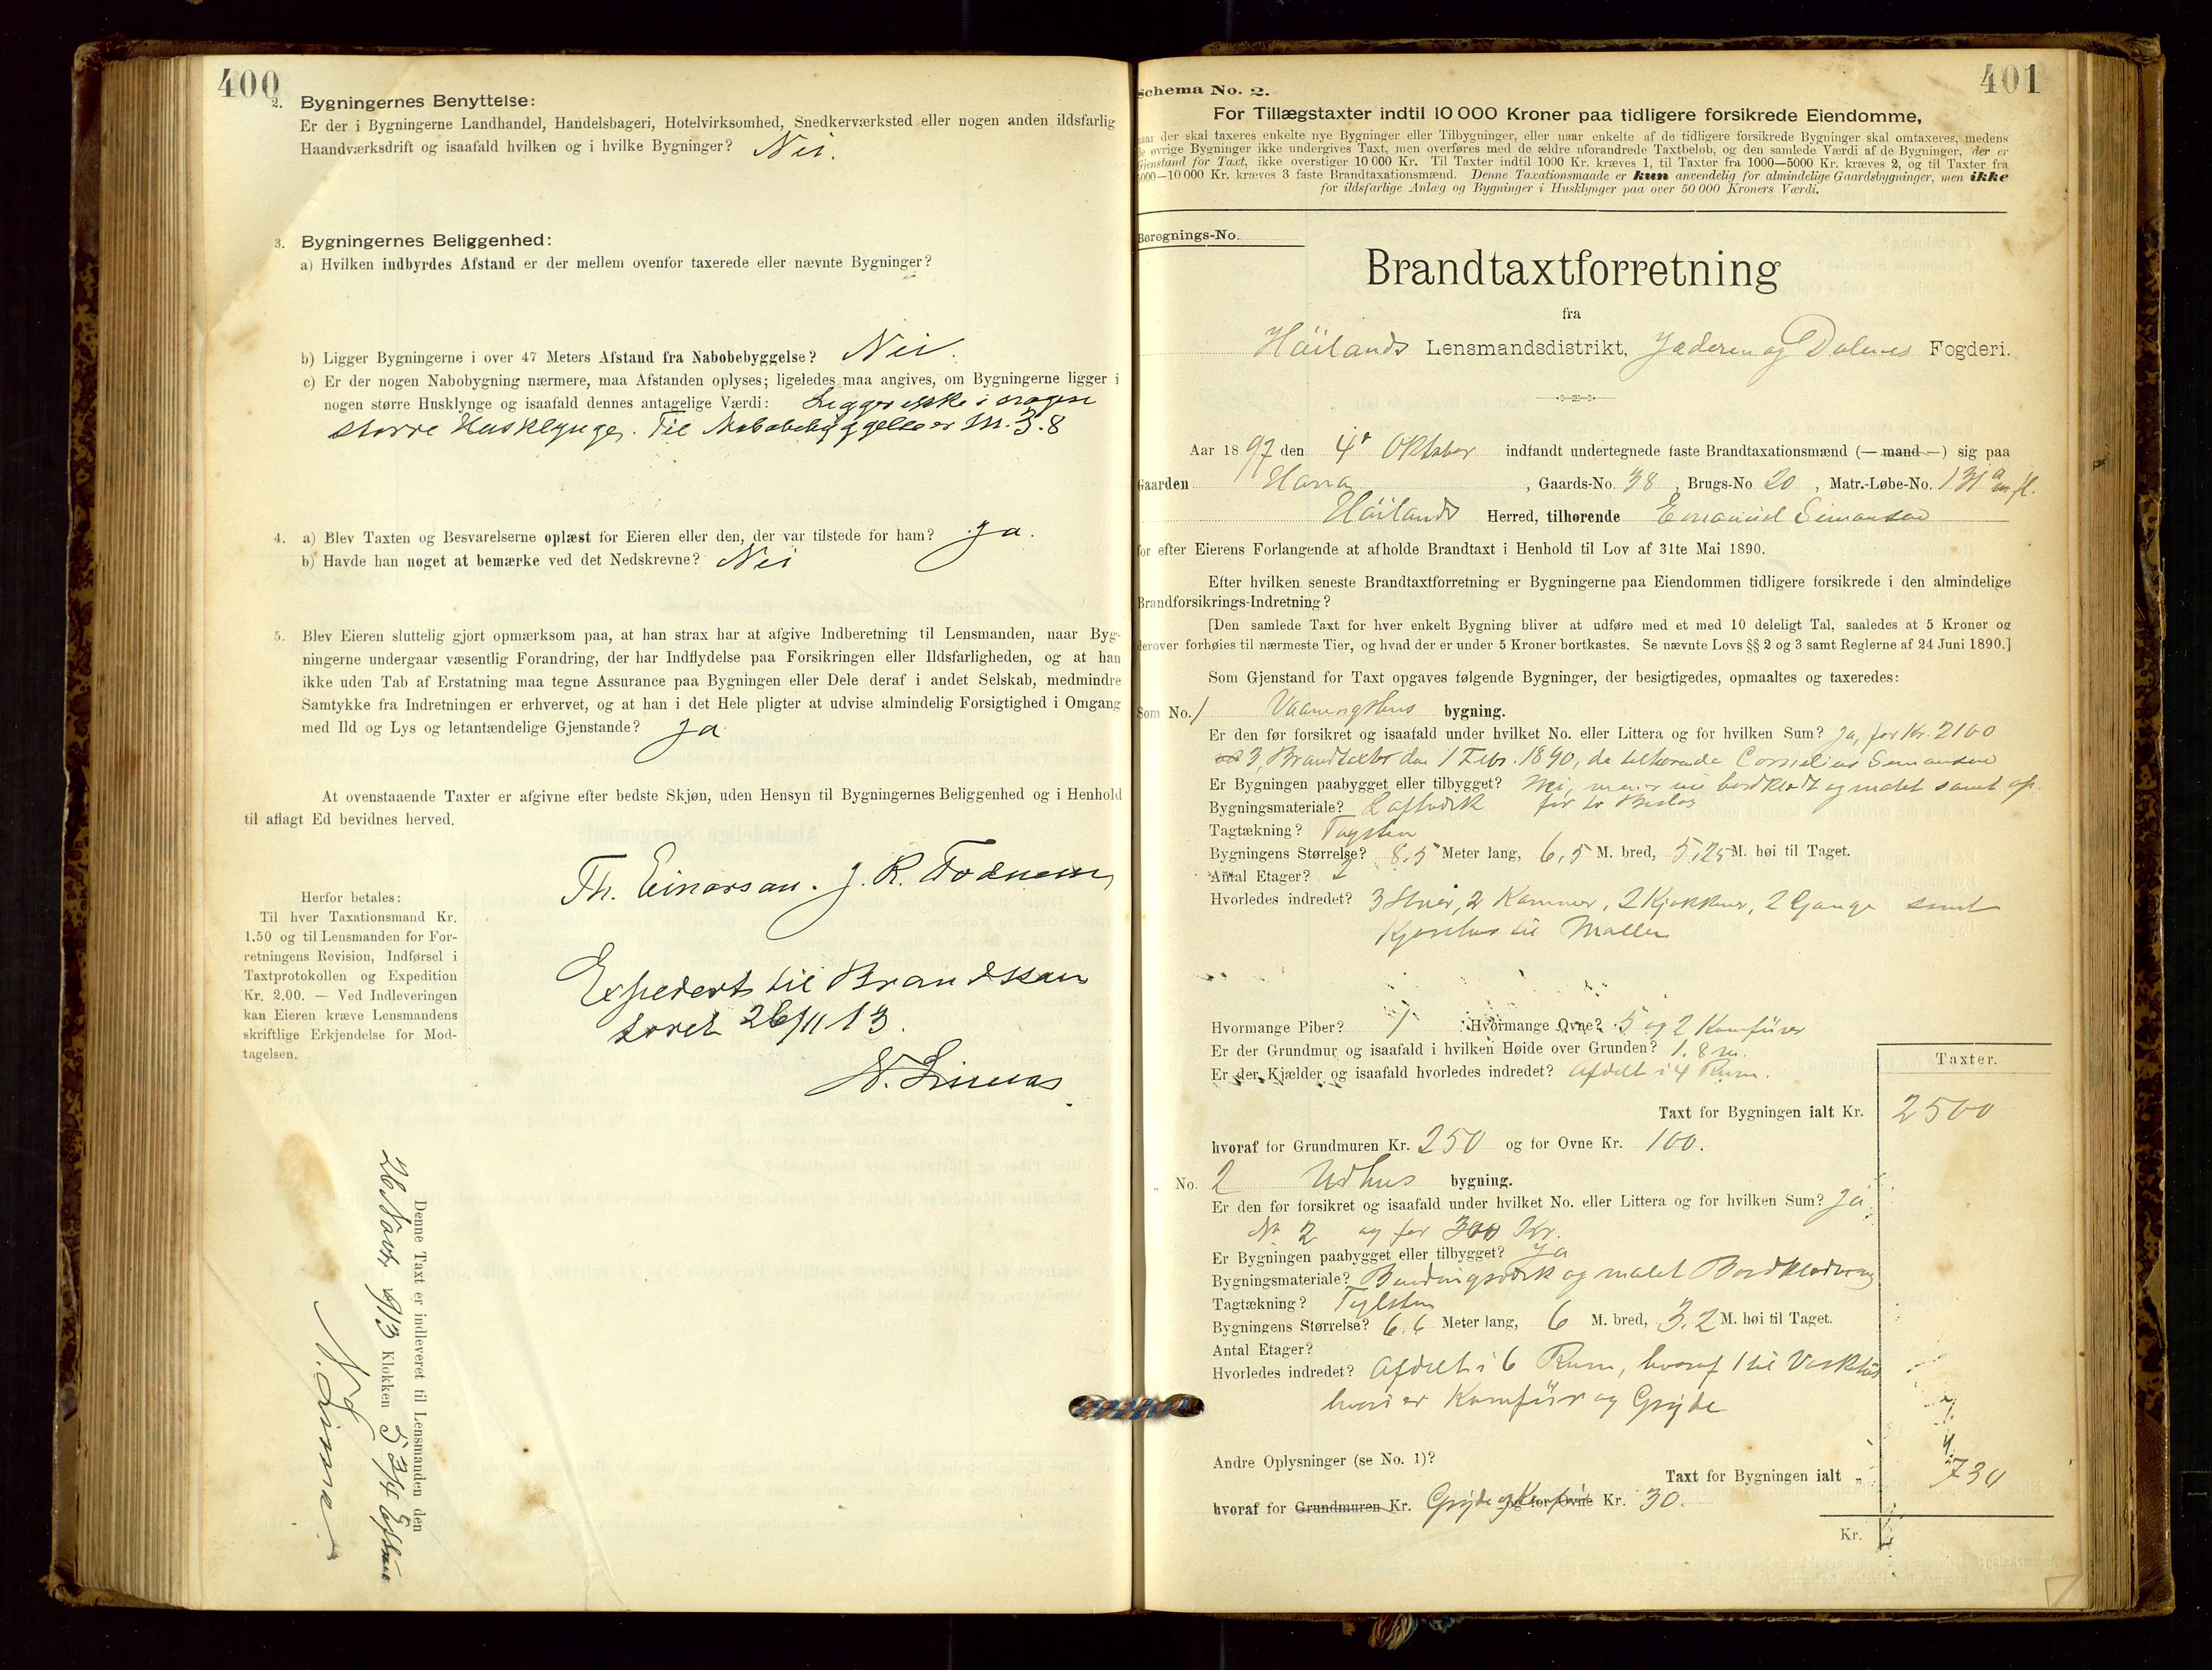 400
2. Bygningernes Benyttelse:
Er der i Bygningerne Landhandel, Handelsbageri, Hotelvirksomhed, Snedkerværksted eller nogen anden ildsfarlig
Haandværksdrift og isaafald hvilken og i hvilke Bygninger? Nei.
3. Bygningernes Beliggenhed:
a) Hvilken indbyrdes Afstand er der mellem ovenfor taxerede eller nævnte Bygninger?
b) Ligger Bygningerne i over 47 Meters Afstand fra Nabobebyggelse? Nei.
c) Er der nogen Nabobygning nærmere, maa Afstanden oplyses; ligeledes maa angives, om Bygningerne ligger i
nogen større Husklynge og isaafald dennes antagelige Værdi: Ligger ikke i nogen
større Husklynge. Til Nabobebyggelse er M. 3.8
4. a) Blev Taxten og Besvarelserne oplæst for Eieren eller den, der var tilstede for ham? Ja.
b) Havde han noget at bemærke ved det Nedskrevne? Nei
5. Blev Eieren sluttelig gjort opmærksom paa, at han strax har at afgive Indberetning til Lensmanden, naar Byg-
ningerne undergaar væsentlig Forandring, der har Indflydelse paa Forsikringen eller Ildsfarligheden, og at han
ikke uden Tab af Erstatning maa tegne Assurance paa Bygningen eller Dele deraf i andet Selskab, medmindre
Samtykke fra Indretningen er erhvervet, og at han i det Hele pligter at udvise almindelig Forsigtighed i Omgang
med Ild og Lys og letantændelige Gjenstande? Ja
At ovenstaaende Taxter er afgivne efter bedste Skjøn, uden Hensyn til Bygningernes Beliggenhed og i Henhold
til aflagt Ed bevidnes herved.
Th. Einarsen. J. R. Fodnesen
Herfor betales:
Til hver Taxationsmand Kr.
1.50 og til Lensmanden for For-
retningens Revision, Indførsel i
Taxtprotokollen og Expedition
Kr. 2.00. — Ved Indleveringen
kan Eieren kræve Lensmandens
skriftlige Erkjendelse for Mod-
tagelsen.
Expedert til Brandkon
toret 26/11 13.
Denne Taxt er indleveret til Lensmanden den
26 Novbr 1913 Klokken 5 3/4 Efterm
401
Schema No. 2.
For Tillægstaxter indtil 10 000 Kroner paa tidligere forsikrede Eiendomme,
naar der skal taxeres enkelte nye Bygninger eller Tilbygninger, eller naar enkelte af de tidligere forsikrede Bygninger skal omtaxeres, medens
de øvrige Bygninger ikke undergives Taxt, men overføres med de ældre uforandrede Taxtbeløb, og den samlede Værdi af de Bygninger, der er
Gjenstand for Taxt, ikke overstiger 10 000 Kr. Til Taxter indtil 1000 Kr. kræves 1, til Taxter fra 1000—5000 Kr. kræves 2, og til Taxter fra
5000—10 000 Kr. kræves 3 faste Brandtaxationsmænd. Denne Taxationsmaade er kun anvendelig for almindelige Gaardsbygninger, men ikke
for ildsfarlige Anlæg og Bygninger i Husklynger paa over 50 000 Kroners Værdi.
Beregnings-No.
Brandtaxtforretning
fra
Høilands Lensmandsdistrikt, Jæderen og Dalenes Fogderi.
Aar 1897 den 4de Oktober indfandt undertegnede faste Brandtaxationsmænd (— mand —) sig paa
Gaarden Hana, Gaards-No. 38, Brugs-No 20, Matr.-Løbe-No. 131a m. fl.
Høilands Herred, tilhørende Emanuel Simonsen
for efter Eierens Forlangende at afholde Brandtaxt i Henhold til Lov af 31te Mai 1890.
Efter hvilken seneste Brandtaxtforretning er Bygningerne paa Eiendommen tidligere forsikrede i den almindelige
Brandforsikrings-Indretning?
[Den samlede Taxt for hver enkelt Bygning bliver at udføre med et med 10 deleligt Tal, saaledes at 5 Kroner og
derover forhøies til nærmeste Tier, og hvad der er under 5 Kroner bortkastes. Se nævnte Lovs §§ 2 og 3 samt Reglerne af 24 Juni 1890.]
Som Gjenstand for Taxt opgaves følgende Bygninger, der besigtigedes, opmaaltes og taxeredes:
Som No. 1 Vaaningshus bygning.
Er den før forsikret og isaafald under hvilket No. eller Littera og for hvilken Sum? Ja, for Kr. 2100
3, Brandtaxt den 1 Febr. 1890, da tilhørende Cornelius Simonsen
Er Bygningen paabygget eller tilbygget? Nei, men er nu bordklædt og malet samt op-
Bygningsmateriale? Laftverk
Tagtækning? Tagsten
Bygningens Størrelse? 8,5 Meter lang, 6,5 M. bred, 5,25 M. høi til Taget.
Antal Etager? 2
Hvorledes indredet? 3 Stuer, 2 Kammer, 2 Kjøkkener, 2 Gange samt
til Møller
Hvormange Piber? 1 Hvormange Ovne? 5 og 2 Komfürer
Er der Grundmur og isaafald i hvilken Høide over Grunden? 1.8 m.
Er der Kjælder og isaafald hvorledes indredet? Afdelt i 4 Rum.
Taxter.
Taxt for Bygningen ialt Kr. 2500
hvoraf for Grundmuren Kr. 250 og for Ovne Kr. 100.
No. 2 Udhus bygning.
Er den før forsikret og isaafald under hvilket No. eller Littera og for hvilken Sum? Ja
No 2 og for 300 Kr.
Er Bygningen paabygget eller tilbygget? Ja
Bygningsmateriale? Bindingsverk og malet Bordklædning
Tagtækning? Teglsten
Bygningens Størrelse? 6.6 Meter lang, 6 M. bred, 3.2 M. høi til Taget.
Antal Etager?
Hvorledes indredet? Afdelt i 6 Rum, hvoraf 1 til Vaskehus
hvori er Komfür og Gryde
Andre Oplysninger (se No. 1)?
Taxt for Bygningen ialt „ 730
hvoraf for Grundmuren Kr. Gryde og Komfür og for Ovne Kr. 30.
Kr.